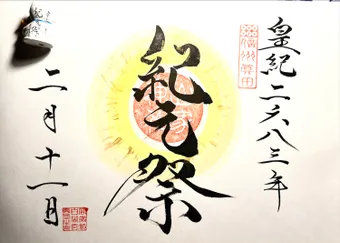 皇紀二六八三年
紀元祭
二月十一日